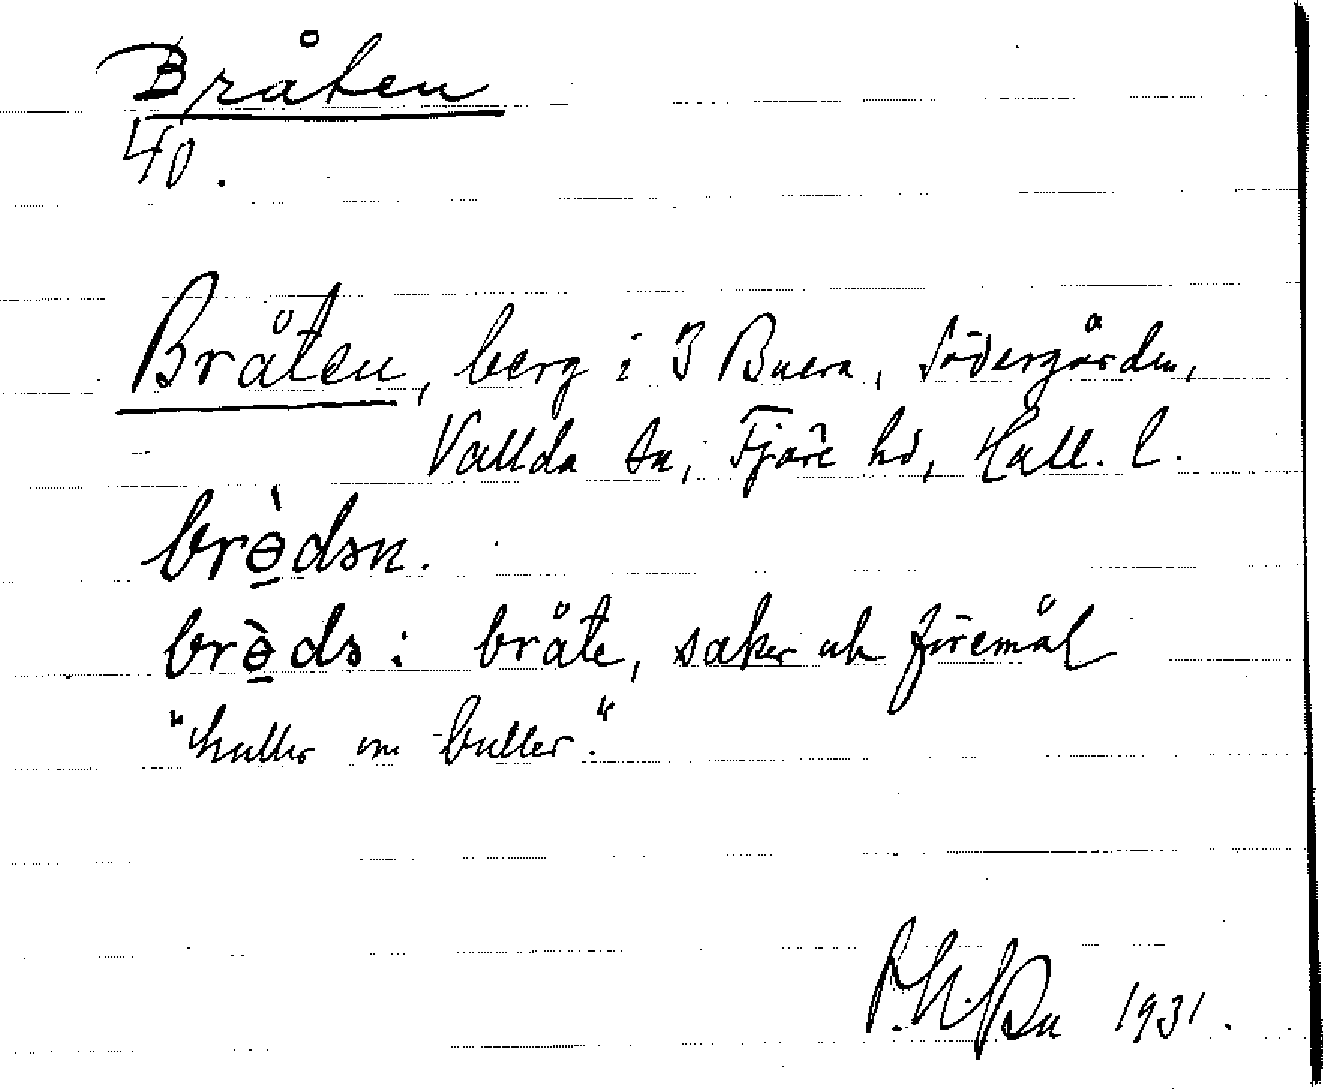 Bråten
40.
Bråten, berg i 3 Buera, Södergården,
Vallda sn, Fjäre hd, Hall. l.
brɵ̠̀dən.
brɵ̠̀də: bråte, saker och föremål
"huller om buller."
1931.